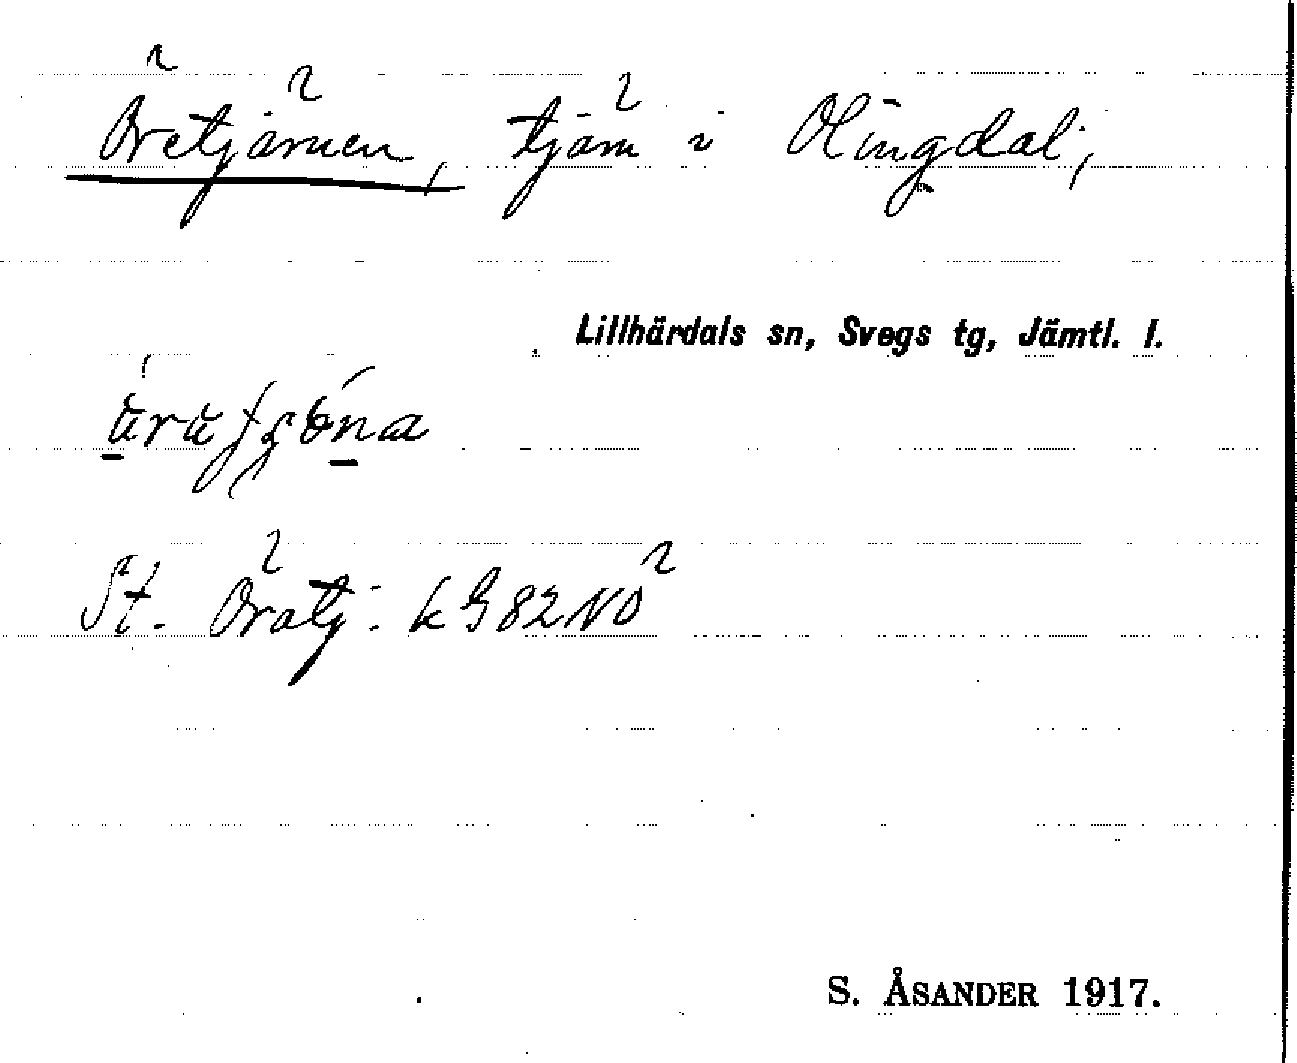 Öretjärnen, tjärn i Olingdal,
Lillhärdals sn, Svegs tg, Jämtl. l.
St. Öratj: k G82NO
S. ÅSANDER 1917.